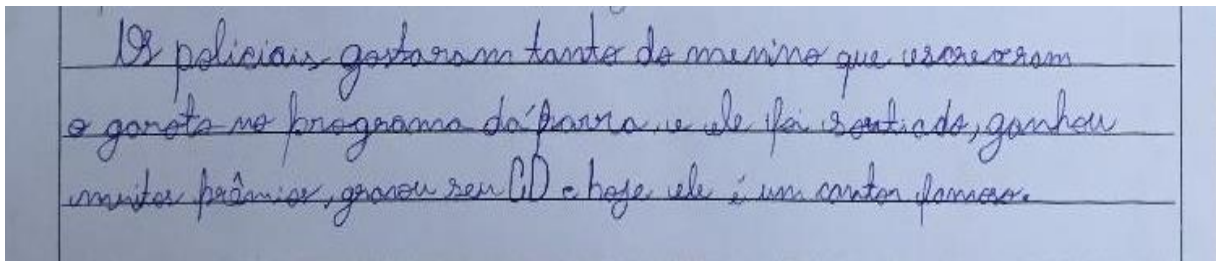 Os policiais gostaram tanto do menino que escreveram
o garoto no programa da farra, e ele foi sortiado, ganhou
muitos prêmios, gravou seu CD e hoje ele é um cantor famoso.